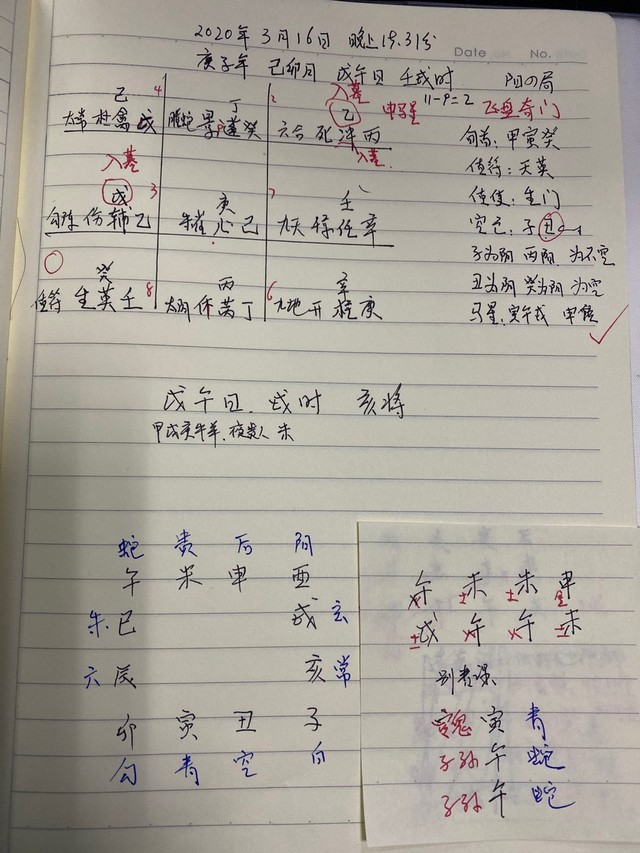 2020年 3月16日 晚上19:31分
Date No.
庚子年 己卯月 戊午日 壬戌时 阳四局
己 4 丁 2 入墓 乙 申马星 11-9=2 飞盘奇门
太常 杜禽戊 螣蛇 景蓬癸 六合 死冲丙 旬首：甲寅癸
入墓 入墓 值符：天英
戊 3 庚 7 壬 值使：生门
勾陈 伤辅乙 朱雀 心己 九天 惊任辛 空亡：子丑
子为阳 两阴 为不空
癸 8 丙 6 辛 丑为阴 癸为阴 为空
值符 生英壬 太阴 休芮丁 九地 开柱庚 马星：寅午戌 申位
戊午日、戌时 亥将
甲戊庚牛羊，夜贵人 未
蛇 贵 后 阴
午 未 申 酉
朱 巳 戌 玄
六 辰 亥 常
卯 寅 丑 子
勾 青 空 白
午 土未 土未 金申
土戊 火午 火午 土未
别责课
官鬼 寅 青
子孙 午 蛇
子孙 午 蛇